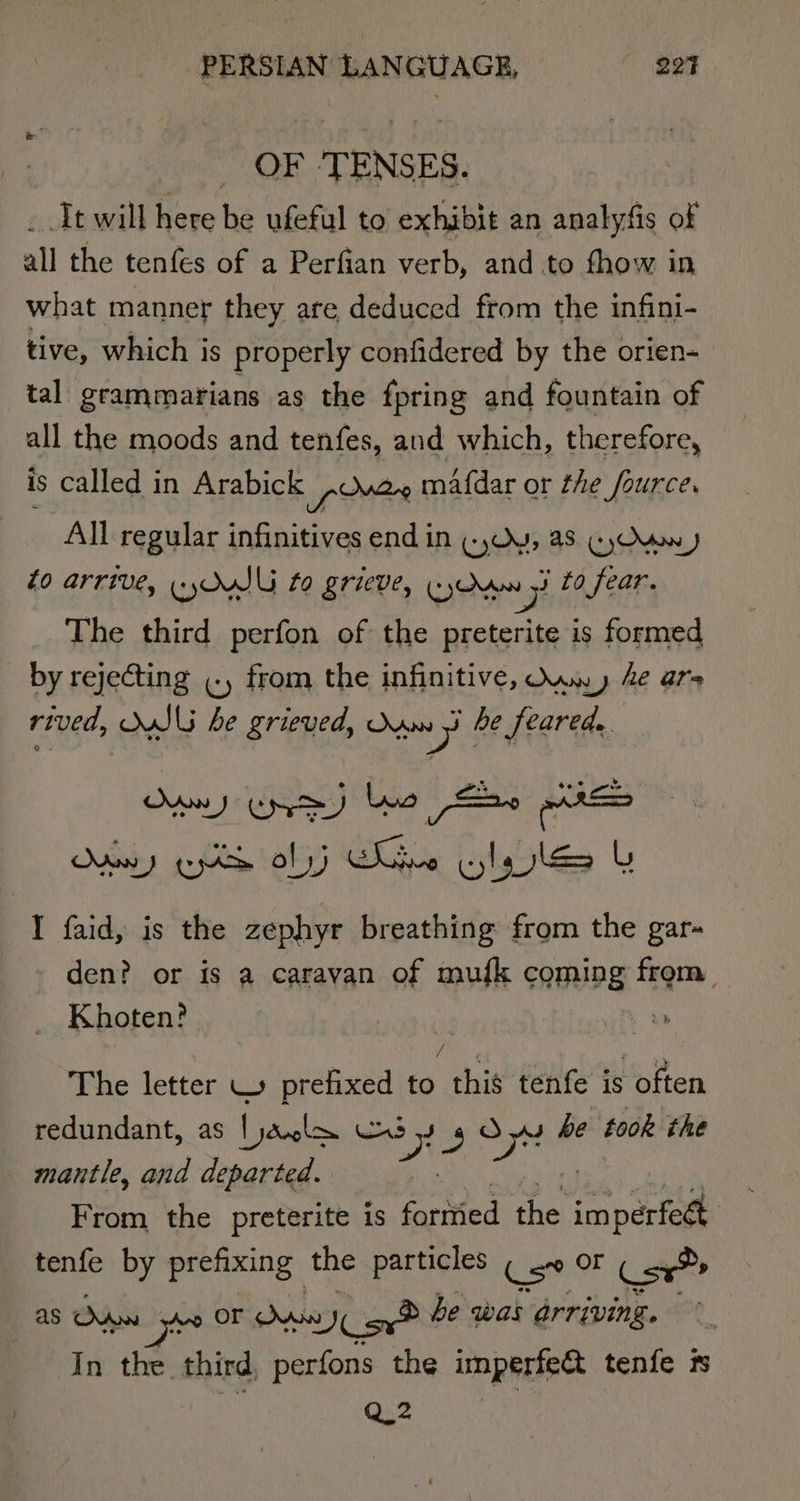 PERSIAN LANGUAGE, 227
OF TENSES.
It will here be uſeful to exhibit an analyſis of
all the tenſes of a Perſian verb, and to ſhow in
what manner they are deduced from the infini-
tive, which is properly conſidered by the orien-
tal grammarians as the ſpring and fountain of
all the moods and tenſes, and which, therefore,
is called in Arabick مصدر máſdar or the ſource.
All regular infinitives end in دن, as رسیدن
to arrive, نالیدن to grieve, ترسیدن to fear.
The third perſon of the preterite is formed
by rejecting ن from the infinitive, رسید he ar-
rived, نالید he grieved, ترسید he feared.
کفتم مکر صبا زچمن رسید
یا کاروان مشک زراه ختن رسید
I ſaid, is the zephyr breathing from the gar-
den? or is a caravan of muſk coming from
Khoten?
The letter ب prefixed to this tenſe is often
redundant, as ببرد و برفت جامهرا he took the
mantle, and departed.
From the preterite is formed the imperfect
tenſe by prefixing the particles می or همی,
as میرسید or همی رسید he was arriving.
In the third perſons the imperfect tenſe is
Q 2